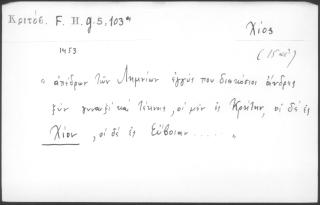 Κριτόβ. F. H. g. 5, 103a
Χίος
1453
(15 αἰ)
" ἀπέδρων τῶν Λημνίων ἐγγύς που διακόσιοι ἄνδρες
ξὺν γυναιξὶ καὶ τέκνοις, οἱ μὲν ἐς Κρήτην, οἱ δὲ ἐς
Χίον, οἱ δὲ ἐς Εὔβοιαν ..... "